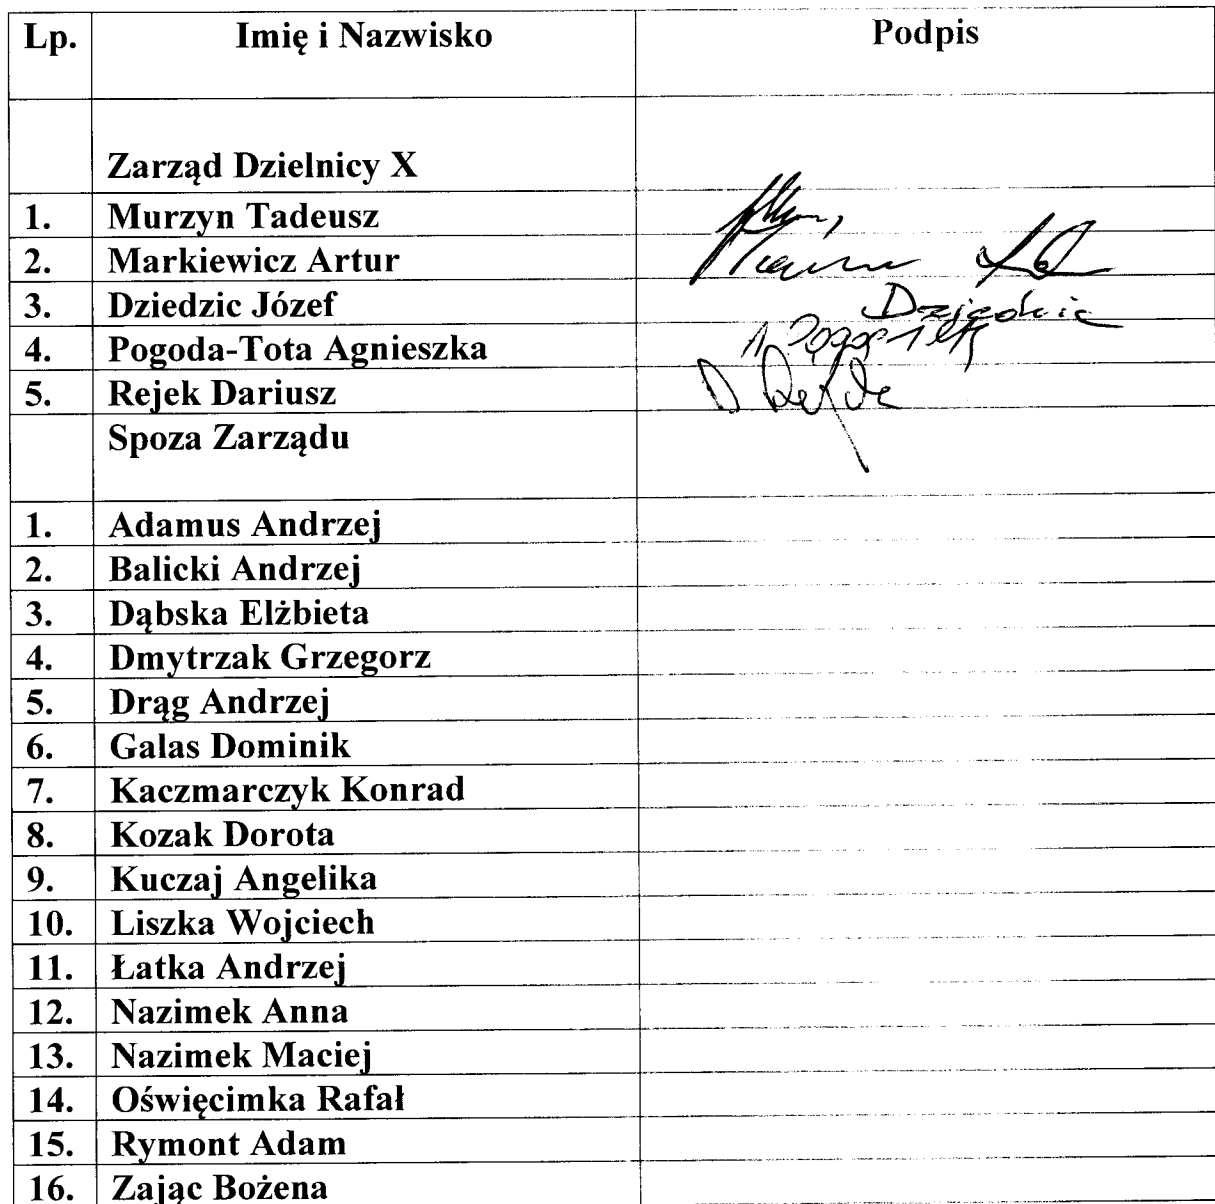 Lp. Imię i Nazwisko Podpis
Zarząd Dzielnicy X
1. Murzyn Tadeusz
2. Markiewicz Artur
3. Dziedzic Józef Dziedzic
4. Pogoda-Tota Agnieszka
5. Rejek Dariusz D
Spoza Zarządu
1. Adamus Andrzej
2. Balicki Andrzej
3. Dąbska Elżbieta
4. Dmytrzak Grzegorz
5. Drąg Andrzej
6. Galas Dominik
7. Kaczmarczyk Konrad
8. Kozak Dorota
9. Kuczaj Angelika
10. Liszka Wojciech
11. Łatka Andrzej
12. Nazimek Anna
13. Nazimek Maciej
14. Oświęcimka Rafał
15. Rymont Adam
16. Zając Bożena